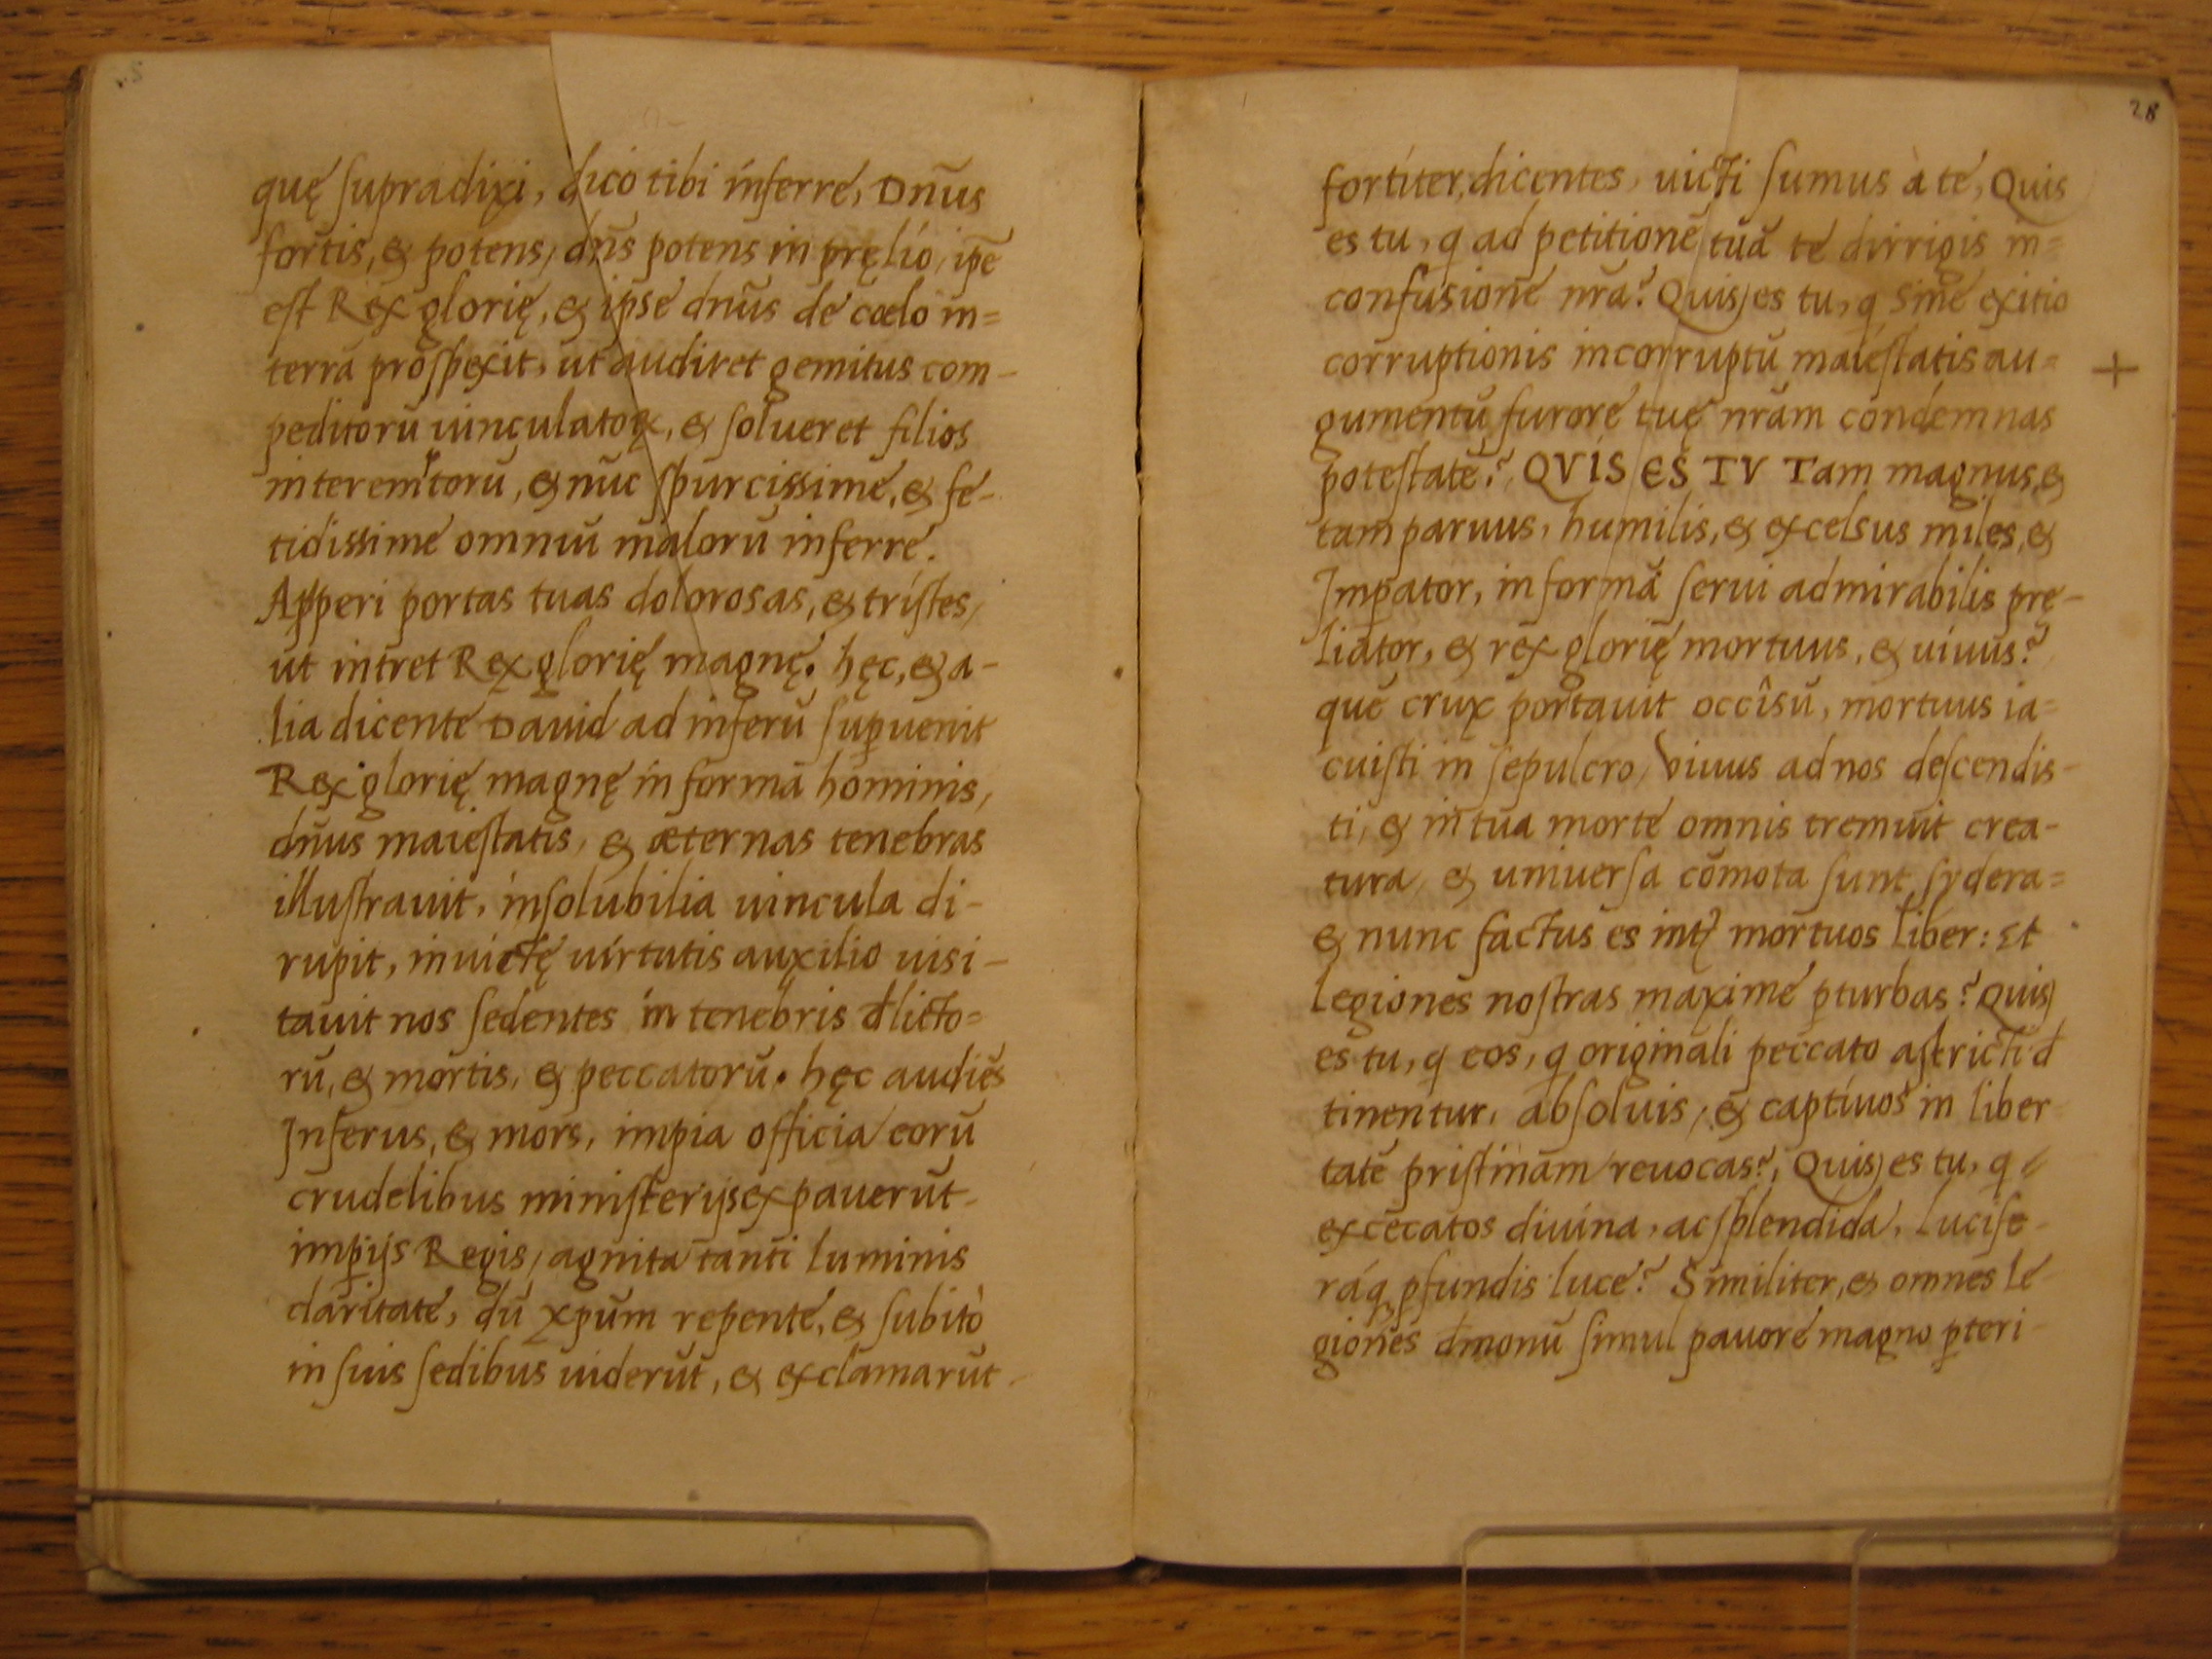 quę ſupradixi, dico tibi inferre, Dnūs
fortis, & potens, dn̄s potens in pręlio, ip̄e
eſt Rex glorię, & ipse dnūs de cœlo in=
terrā proſpexit, ut audiret gemitus com-
peditorū uinculatoꝝ, & ſolueret filios
interemtorū, & nūc ſpurcissime, & fe-
tidissime omniū malorū inferre.
Apperi portas tuas dolorosas, & triſtes,
ut intret Rex glorię magnę. hęc, & a-
lia dicente Dauid ad inferū ſuꝑuenit
Rex glorię magnę in formā hominis,
dnūs maieſtatis, & æternas tenebras
illuſtrauit, inſolubilia uincula di-
rupit, inuictę uirtutis auxilio uisi-
tauit nos ſedentes in tenebris đlicto=
rū, & mortis, & peccatorū. hęc audiēs
Inferus, & mors, impia officia eorū
crudelibus miniſterijs expauerūt-
imꝑijs Regis, agnita tanti luminis
claritate, dū xp̄um repente, & ſubitò
in ſuis ſedibus uiderūt, & exclamarūt-
28
fortiter, dicentes, uicti ſumus à te, Quis
es tu, q ad petitionē tuā te dirrigis in=
confusionē nrā? Quis es tu, q sine exitio
corruptionis incorruptū maieſtatis au=
+
gumentū furore tuę nrām condemnas
poteſtatē? QVIS ES TV Tam magnus, &
tam paruus, humilis, & excelsus miles, &
Imꝑator, in formā ſerui admirabilis prę-
liator, & rex glorię mortuus, & uiuus?
quē crux portauit occîsū, mortuus ia=
cuiſti in ſepulcro, viuus ad nos deſcendis-
ti, & in tua morte omnis tremuit crea-
tura, & uniuerſa cōmota ſunt ſydera=
& nunc factus es int mortuos liber: Et
legiones noſtras maxime ꝑturbas? Quis
es tu, q eos, q originali peccato aſtricti đ
tinentur, abſoluis, & captiuos in liber
tatē priſtinam reuocas? Quis es tu, q
excecatos diuina, ac ſplendida, lucife-
ráq ꝓfundis luce? Similiter, & omnes le-
giones đmonū ſimul pauore magno ꝑteri-